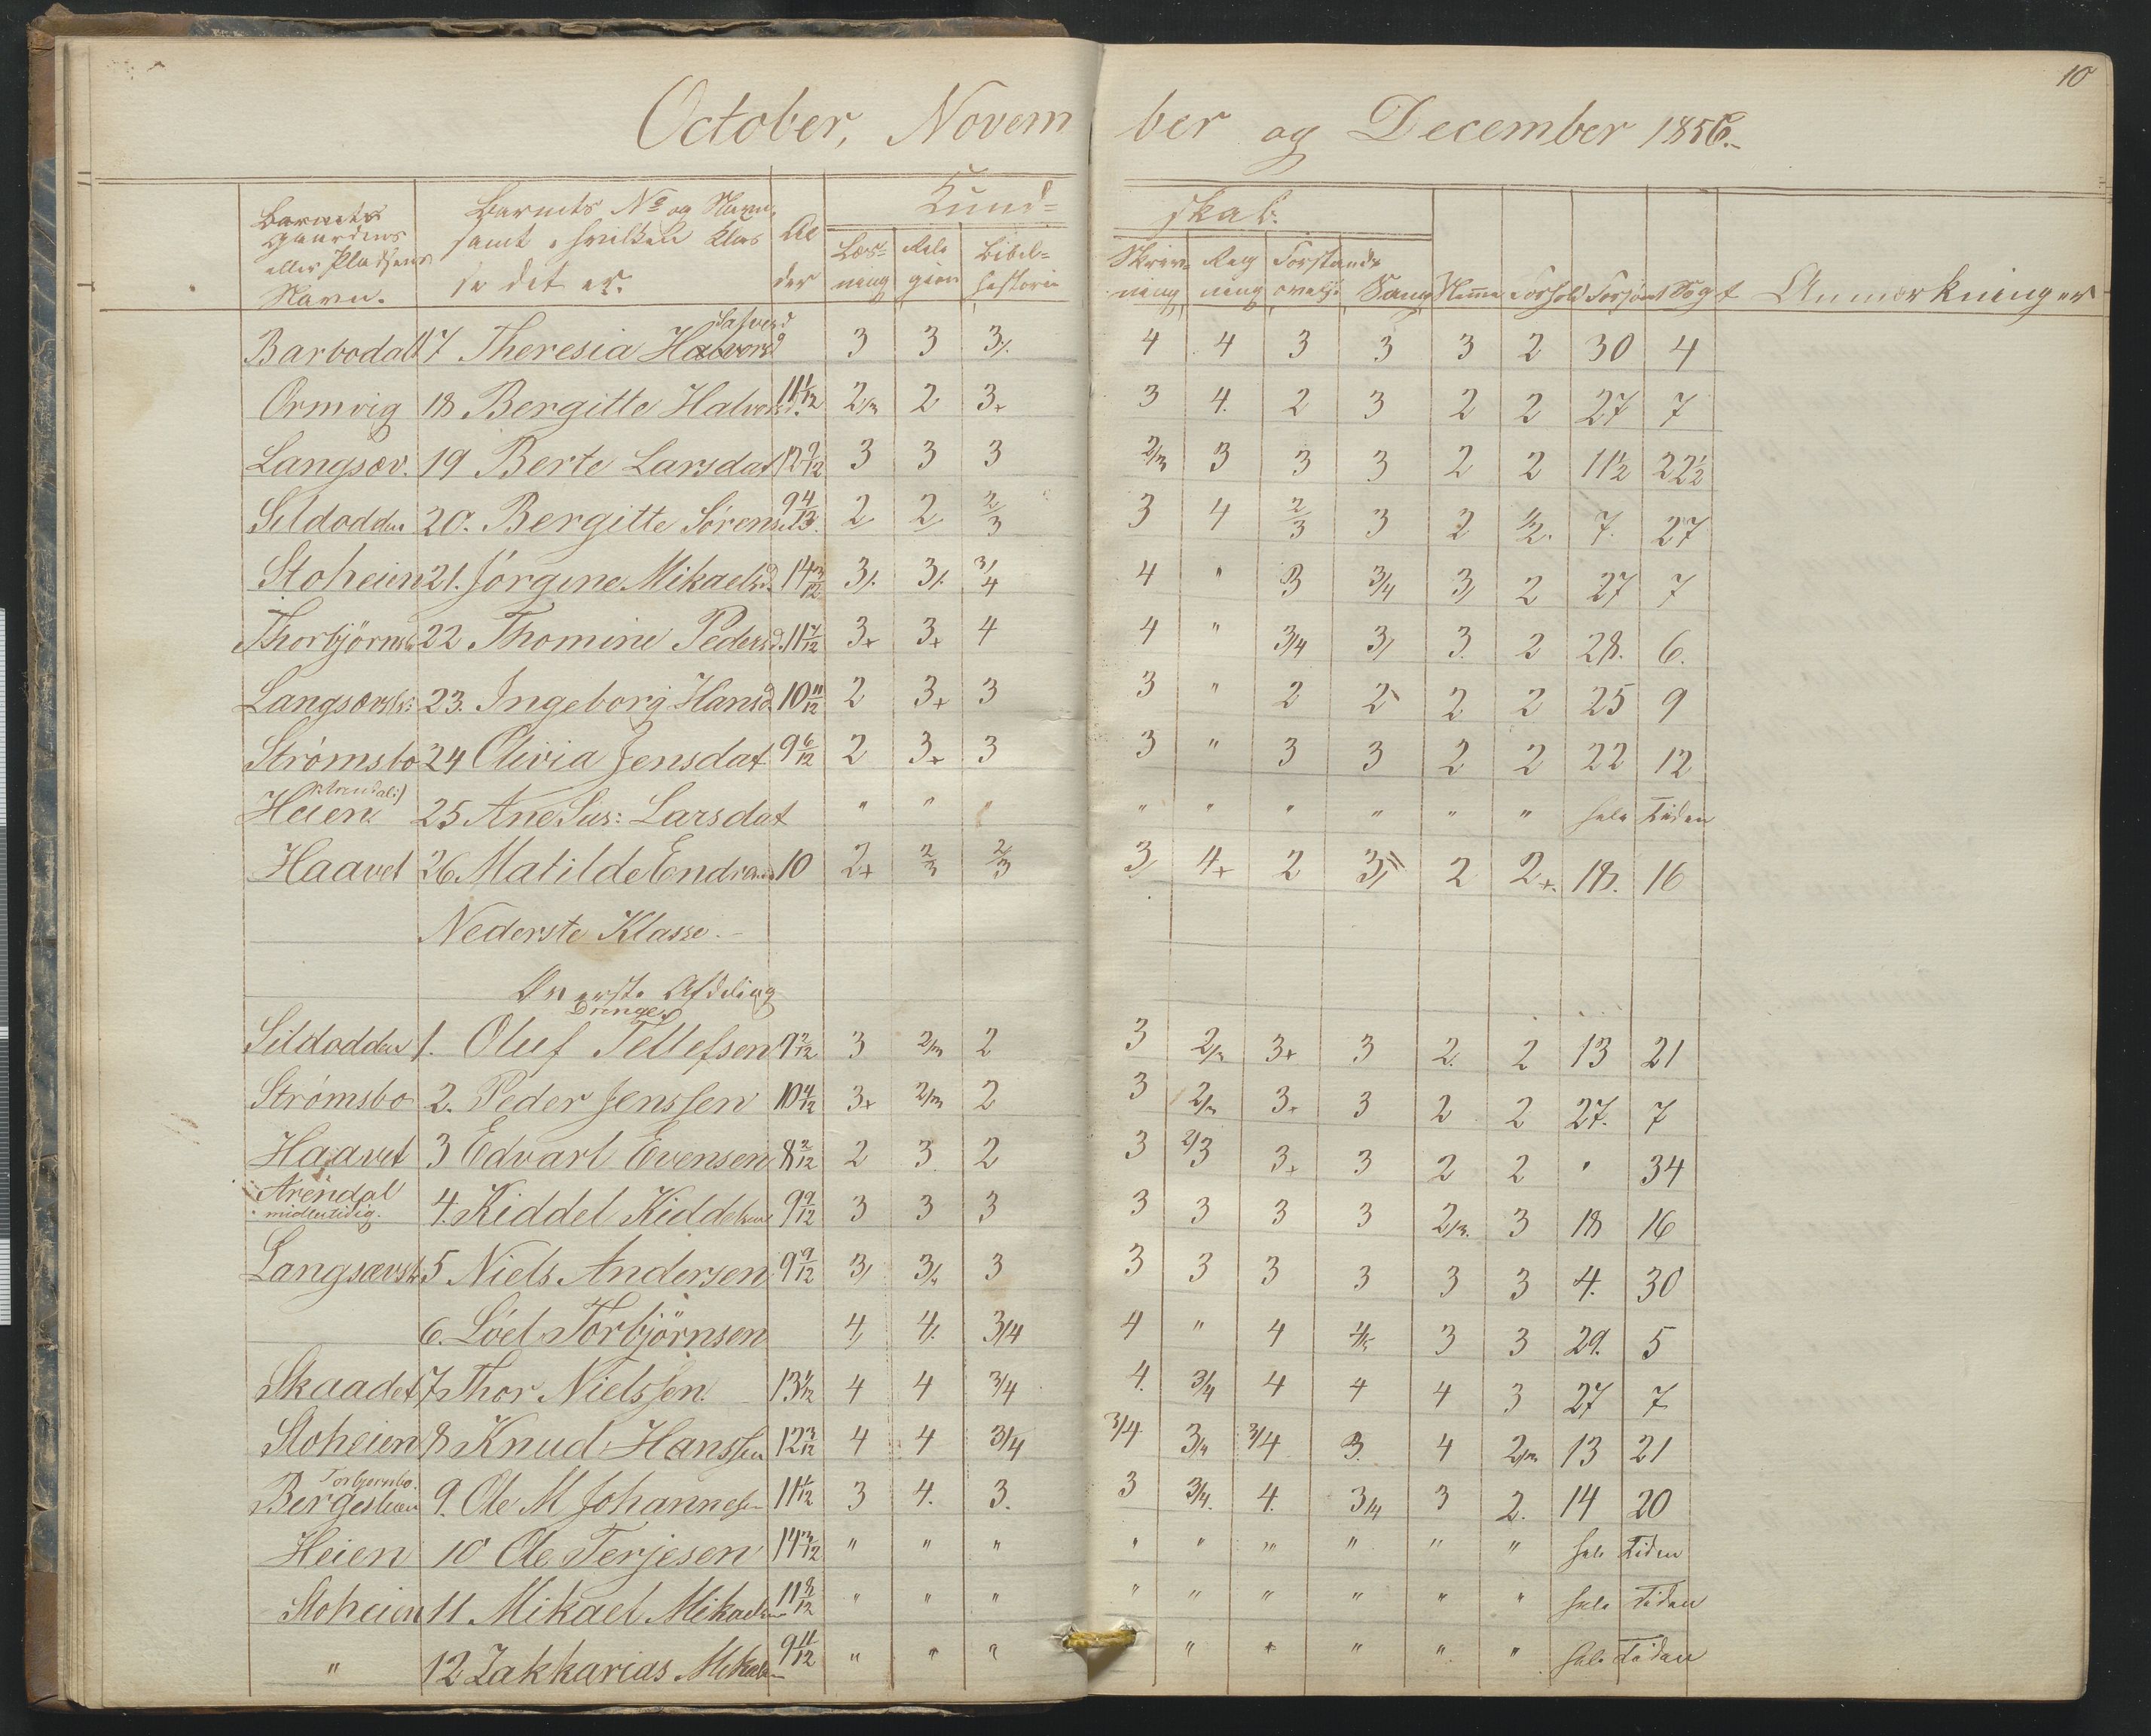 10
October, November og December 1856.
Barnets Gaardens eller Pladsens Navn. Barnets No og Navn, samt i hvilken Klasse det er. Alder Kundskab.
Læsning Religion Bibelhistorie Skrivning Regning Forstandsøvelse Sang Anmærkninger
Barbodal 17 Theresia Halvorsd 3 3 3/. 4 4 3 3 3 2 30 4
Ormvig 18 Bergitte Halvorsd. 11 1/12 2/3 2 3+ 3 4. 2 3 2 2 27 7
Langsæv. 19 Berte Larsdat 12 9/12 3 3 3 2/3 3 3 3 2 2 11½ 22½
Sildodden 20. Bergitte Sörensd. 2 2 2/3 3 4 2/3 3 2 1/2. 7. 27
Stoheien 21. Jörgine Mikaelsd. 14 3/12 3/. 3/. 3/4 4 " 3 3/4 3/ 2 27 7
22 Thomine Pedersd. 11 7/12 3+ 3+ 4 4 " 3/4 3/ 3. 2 28. 6.
23. Ingeborg Hansd. 10 11/12 2 3+ 3 3 " 2 2 2 2 25 9
Strømsbo 24 Olivia Jensdat. 9 6/12 2 3+ 3 3 " 3 3 2 2 22 12
Heien 25 Ane Sus: Larsdat " " " " " " " " " hele Tiden
Haavet 26. Matilde 10 2+ 2/3 2/3 3/ 4+ 2 3/ 2 2+. 18. 16
Nederste Klasse.-
Øverste Afdeling
Drenge.
Sildodden 1. Oluf Tellefsen 9 2/12 3 2/3 2 3 2/3 3+ 3 2. 2 13 21
Strømsbo 2. Peder Jenssen 10 4/12 3+ 2/3 2 3 2/3 3+ 3 2 2 27. 7
Haavet 3 Edvart Evensen 8 2/12 2 3 2 3 2/3 3+ 3 2 2 " 34
Arendal midlertidig. 4. Kiddel Kiddelsen 9 9/12 3 3 3 3 3 3 3 2/3. 3 18 16
5 Niels Andersen 9 9/12 3/ 3/. 3 3 3 3 3 3 3 4. 30
6. Löel Torbjörnsen 4/ 4/. 3/4 4 " 4 3 3 29. 5
Skaadet 7 Thor Nielssen. 13 1/12 4 4 3/4 4. 3/4 4 4 4 3 27 7
Stoheien 8 Knud Hanssen 12 3/12 4 4 3/4 3/4 3/4 3/4 3. 4 2/3 13 21
Torbjörnsbo. 9. Ole M Johannesen 11 1/12 3 4. 3. 3 3/4. 4. 3/4 3 2. 14 20
Heien 10 Ole Terjesen 14 3/12 " " " " " " " " " hele Tiden
Stoheien 11 Mikael Mikaelsen 11 8/12 " " " " " " " " " hele Tiden
" 12 Zakkarias Mikaelsen 9 11/12 " " " " " " " " hele Tiden